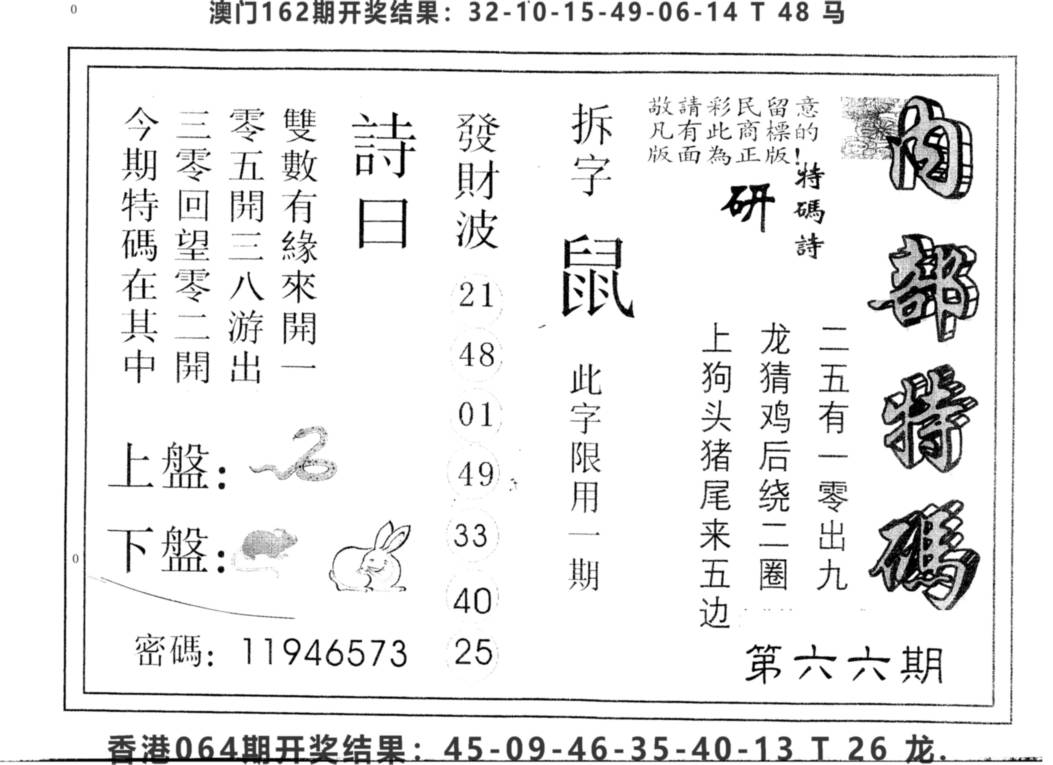 澳门162期开奖结果：32-10-15-49-06-14 T 48 马
0
內部特碼
敬請彩民留意
凡有此商標的!
版面為正版
特碼詩
研
二五有一零出九
龙猜鸡后绕二圈
上狗头猪尾来五边
第六六期
拆字
鼠
此字限用一期
發財波
21
48
01
49
33
40
25
詩曰
雙數有緣來開一
零五開三八游出
三零回望零二開
今期特碼在其中
上盤：
下盤：
0
密碼：11946573
香港064期开奖结果：45-09-46-35-40-13 T 26 龙.